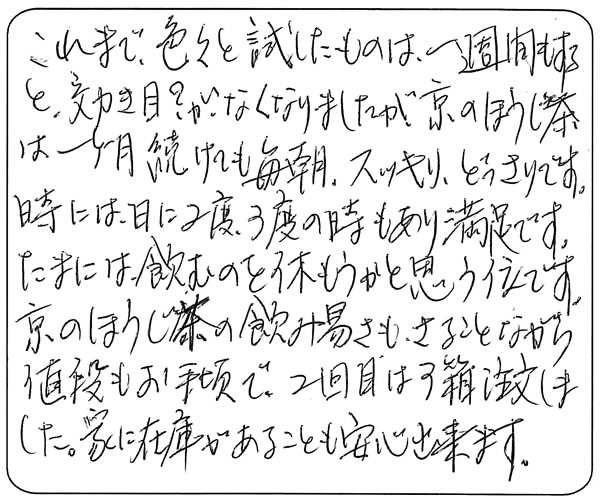 これまで、色々と試したものは、一週間もする
と、効き目?が、なくなりましたが、京のほうじ茶
は一ヶ月続けても毎朝、スッキリ、どっさりです。
時には、日に2度、3度の時もあり満足です。
たまには、飲むのを休もうかと思う位です。
京のほうじ茶の飲み易さも、さることながら
値段もお手頃で、2回目は3箱注文しま
した。家に在庫があることも安心出来ます。